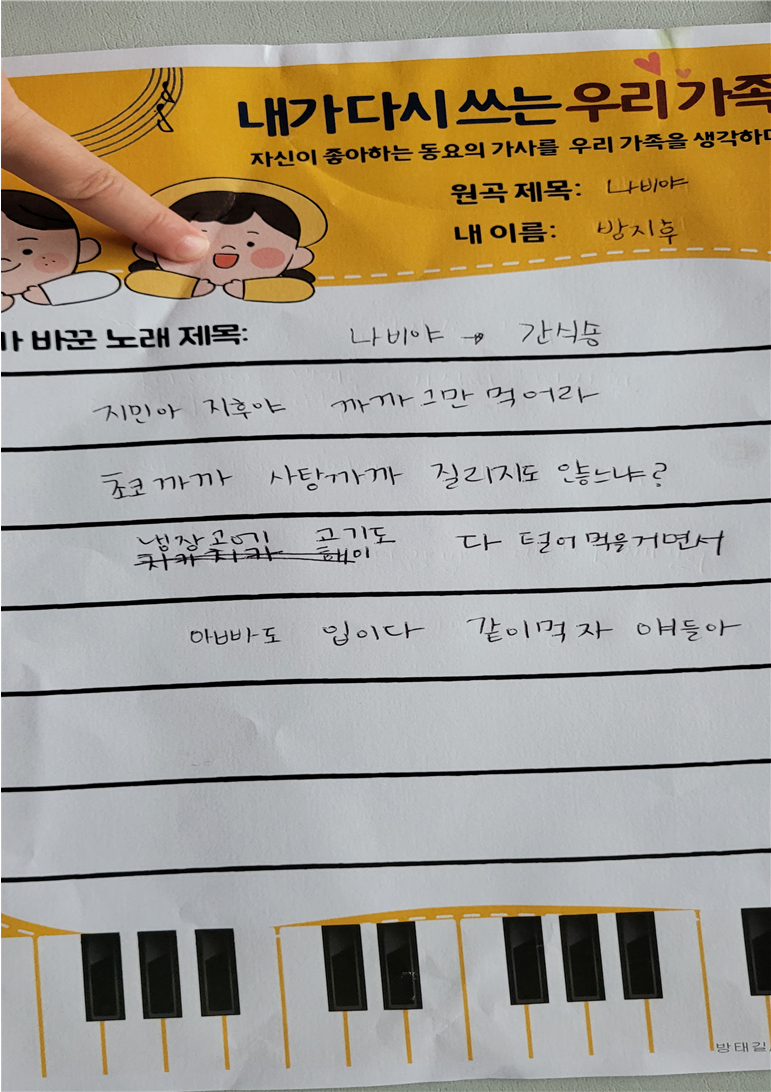 내가 다시 쓰는 우리 가족
자신이 좋아하는 동요의 가사를 우리 가족을 생각하며
원곡 제목: 나비야
내 이름: 방지후
가 바꾼 노래 제목: 나비야 → 간식송
지민아 지후야 까까 그만 먹어라
쵸코까까 사탕까까 질리지도 않느냐?
냉장고에 고기도 다 털어먹을거면서
치카치카
아빠도 입이다 같이먹자 얘들아
방태길